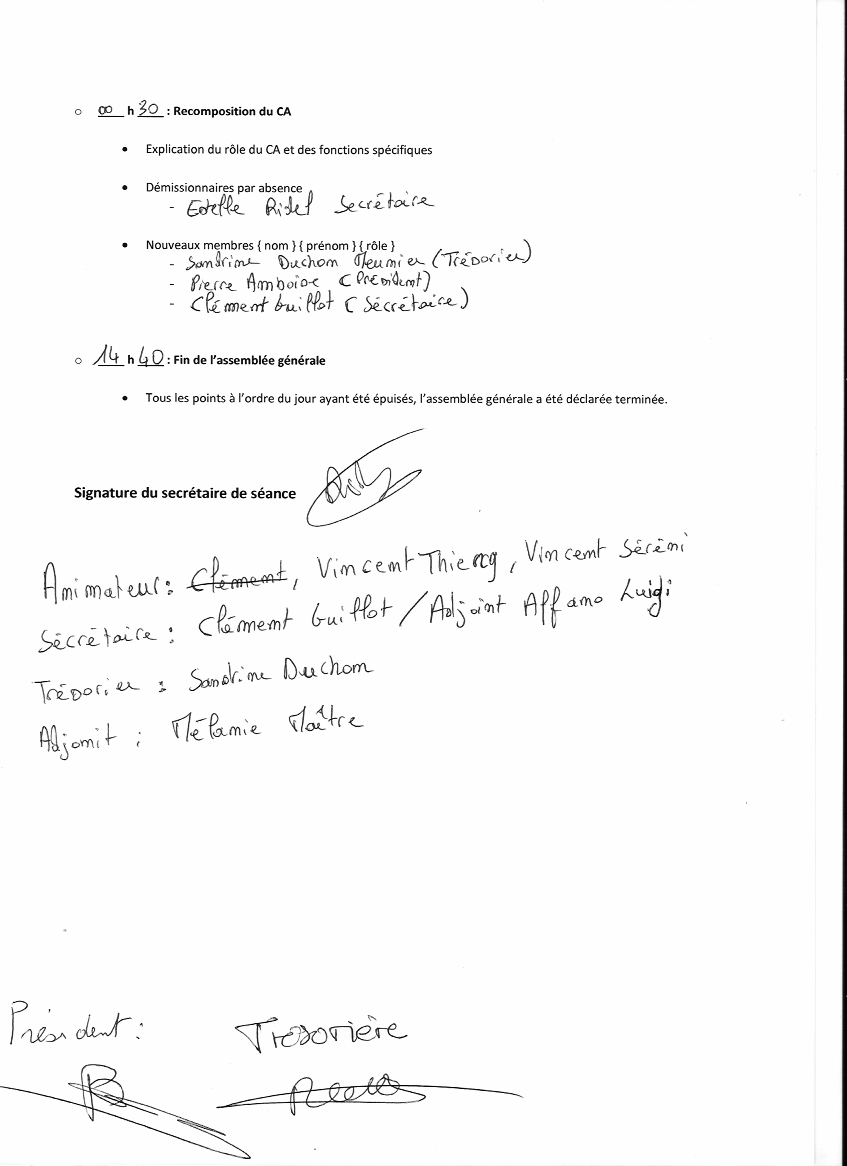 o 00 h 30 : Recomposition du CA
• Explication du rôle du CA et des fonctions spécifiques
• Démissionnaires par absence
- Estelle Secrétaire
• Nouveaux membres { nom } { prénom } { rôle }
- Sandrine Duchom Meumier (Trésorier)
- Pierre Amboise (Président)
- Clément Guillot (Sécrétaire)
o 14 h 40 : Fin de l'assemblée générale
• Tous les points à l'ordre du jour ayant été épuisés, l'assemblée générale a été déclarée terminée.
Signature du secrétaire de séance
Animateur : Clément, Vincent Thierry, Vincent Sérémi
Sécrétaire : Clément Guillot / Adjoint Affamo Luigi
Trésorier : Sandrine Duchom
Adjomit : Mélamie Maître
Président : Tresorière